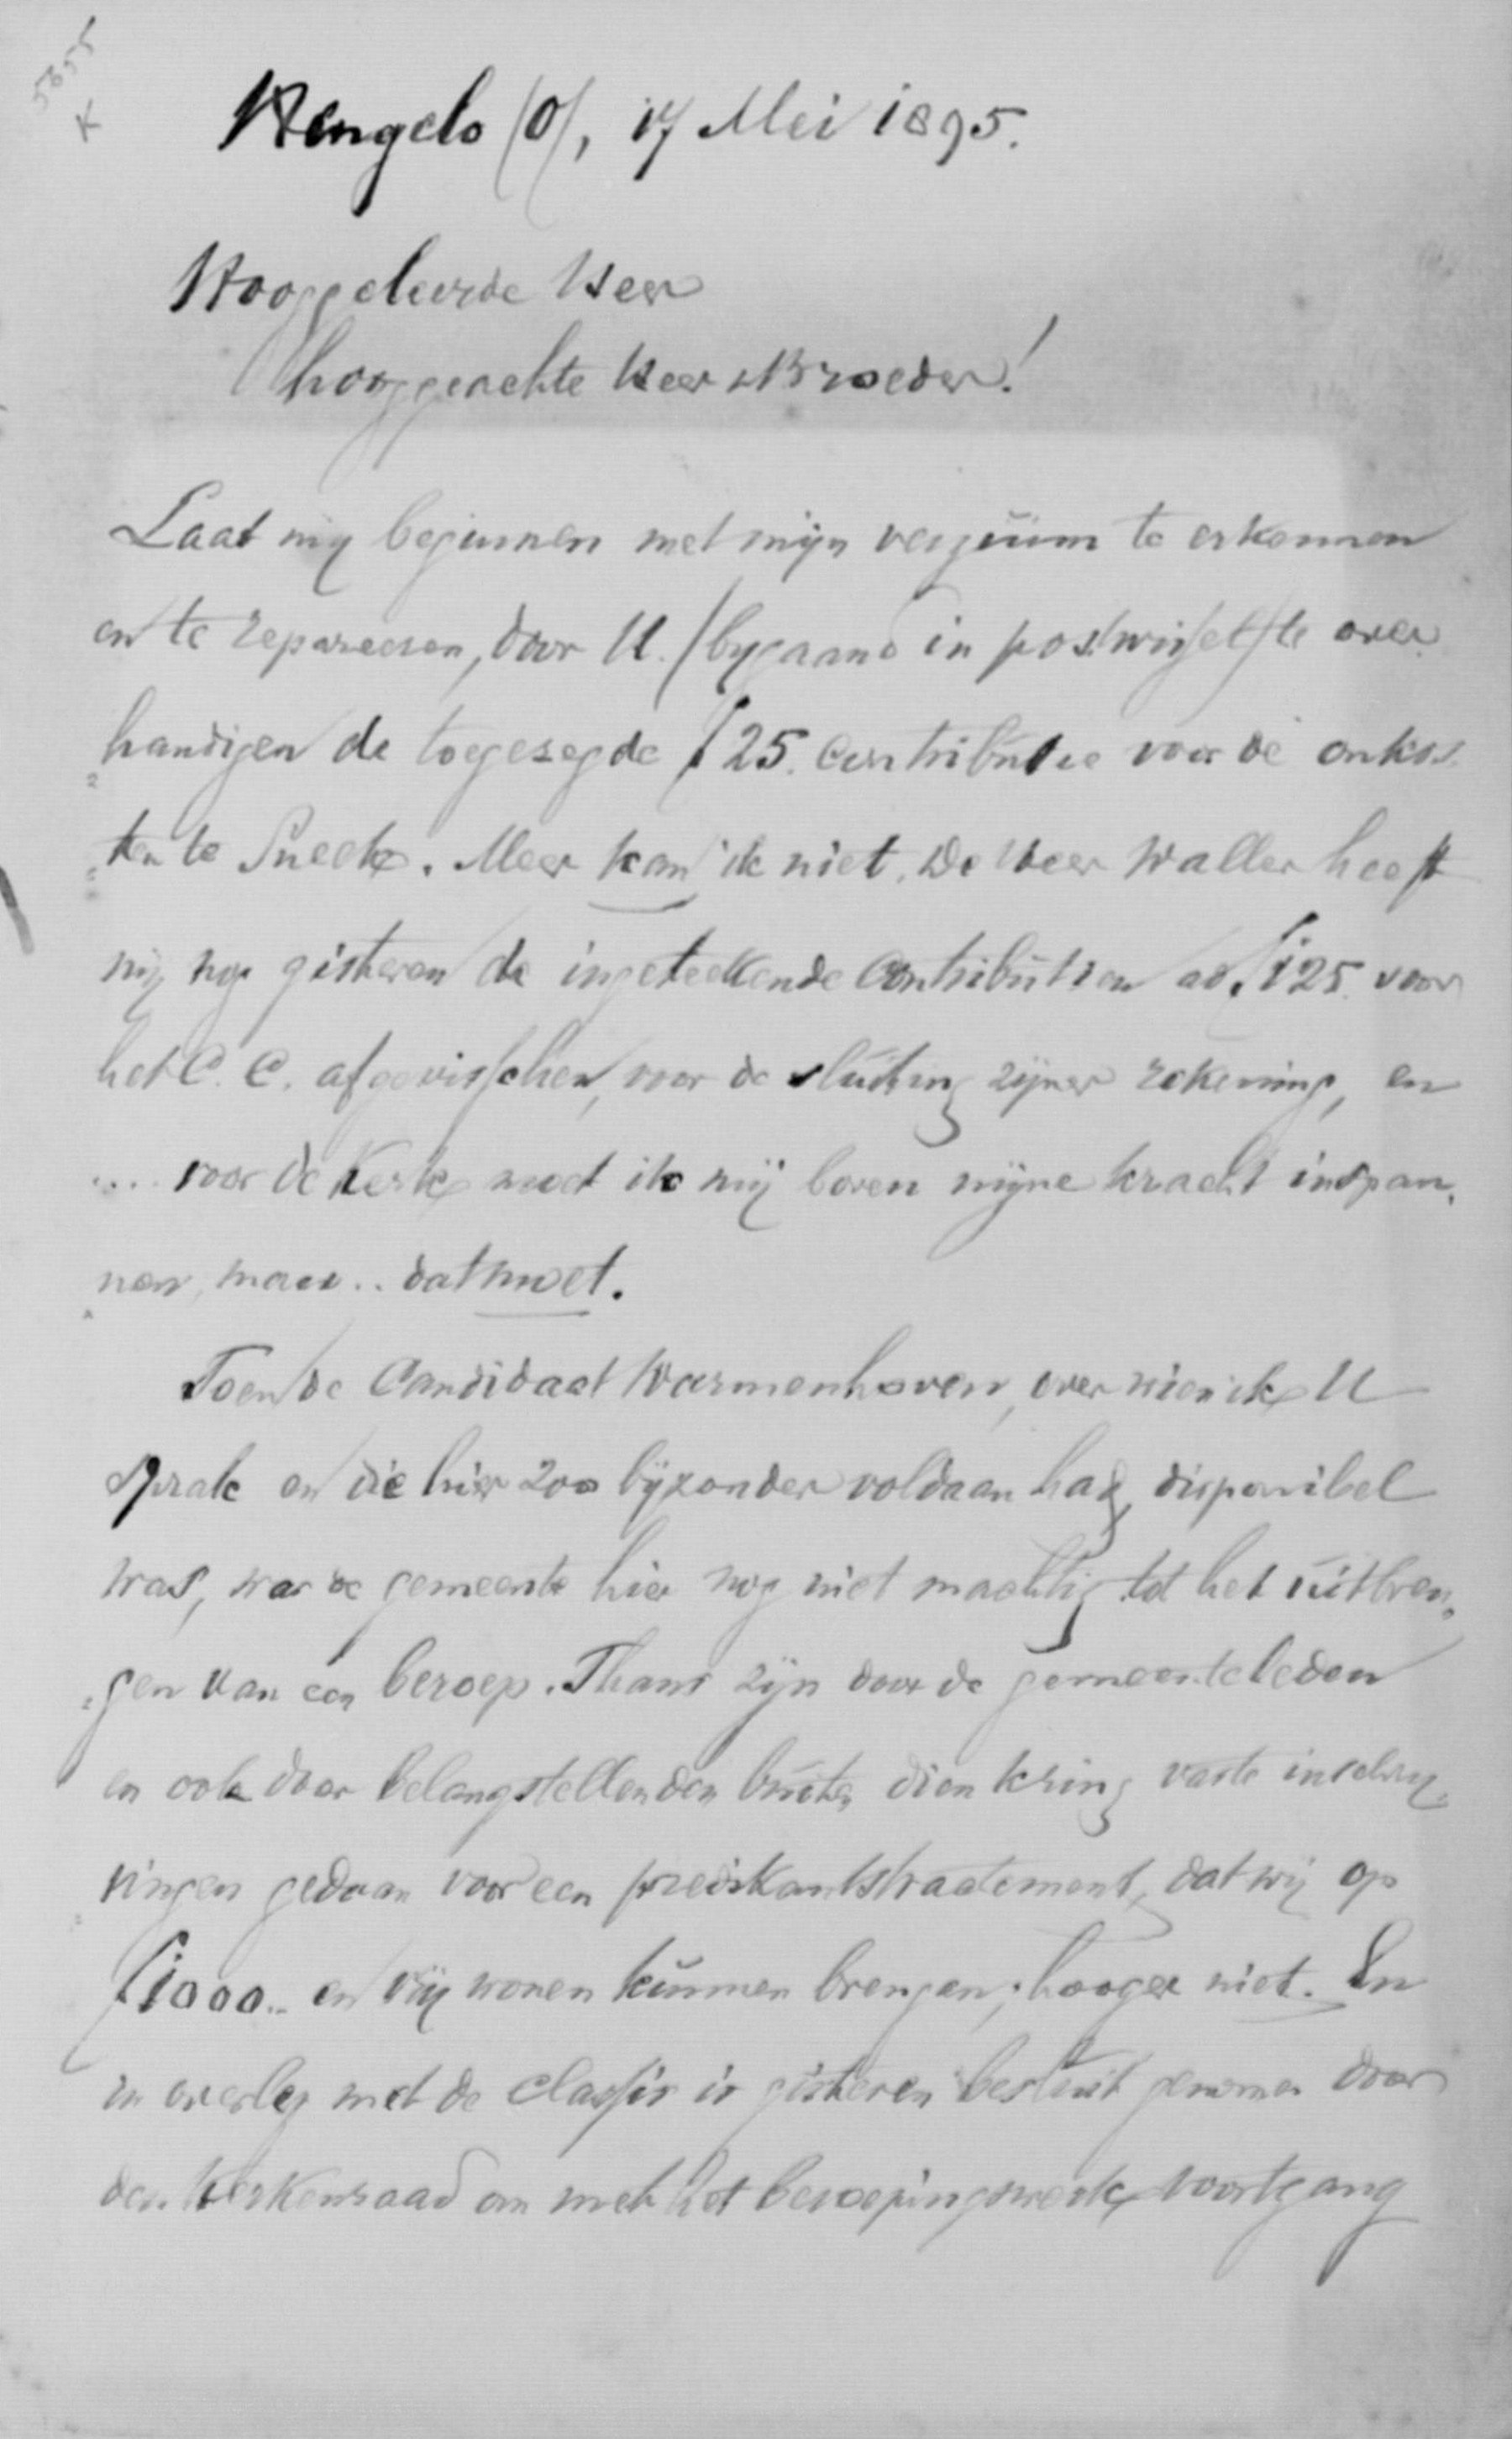 5655
K
Hengelo (O), 17 Mei 1895.
Hooggeleerde Heer
hooggeachte Heer & Broeder!
Laat mij beginnen met mijn verzuim te erkennen
en te repareeren, door U. (bijgaand in postwissel) te over
handigen de toegezegde f 25. contributie voor de onkos-
=ten te Sneek. Meer kan ik niet. De Heer Waller heeft
mij nog gisteren de ingeteekende contributien ad f 125. voor
het C. C. afgevisschen, voor de sluiting zijner rekening, en
.... voor de Kerk moet ik mij boven mijne kracht inspan-
nen, maar .. dat moet.
Toen de Candidaat Warmenhoven, over wien ik U
sprak en die hier zoo bijzonder voldaan had, disponibel
was, was de gemeente hier nog niet machtig tot het uitbren-
=gen van een beroep. Thans zijn door de gemeenteleden
en ook door belangstellenden buiten dien kring vaste inschrij-
vingen gedaan voor een predikantstraatement, dat wij op
f 1000.- en vrij wonen kunnen brengen; hooger niet. En
in overleg met de classis is gisteren besluit genomen door
den kerkenraad om met het beroepingswerk voortgang